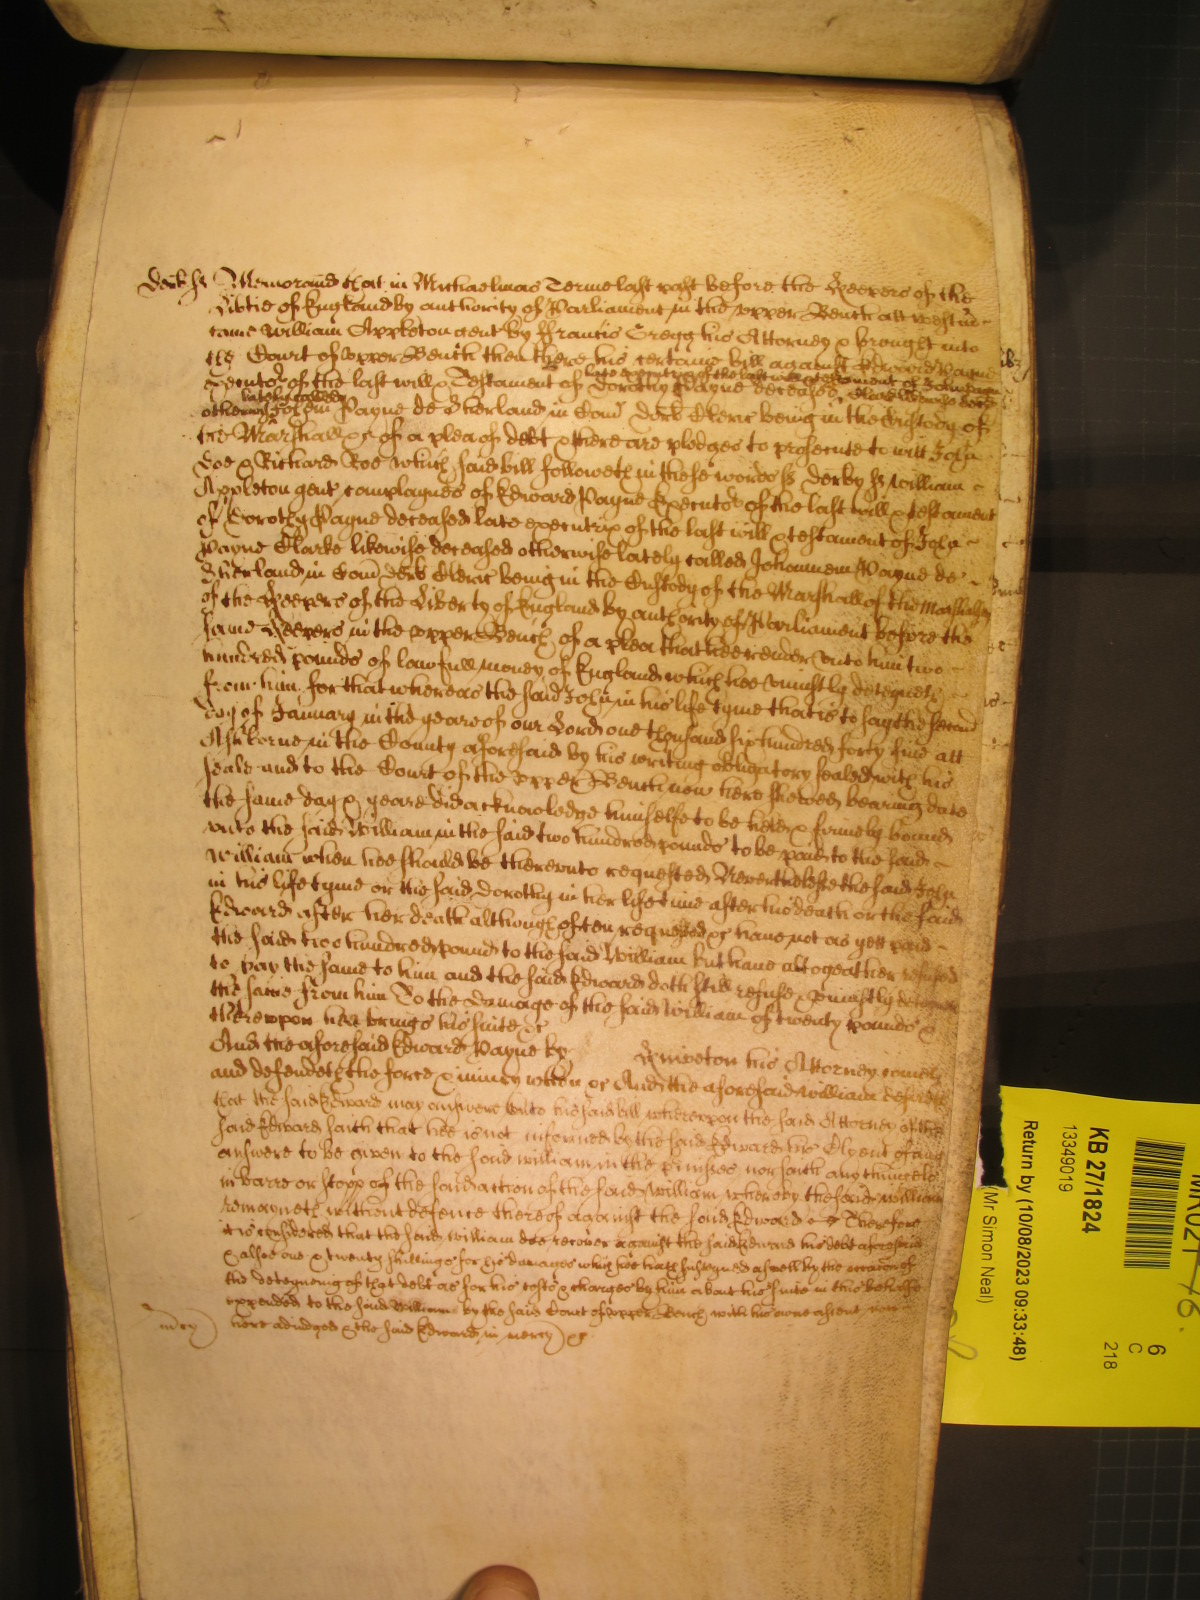 Derb ss Memorand that in Michaelmas Terme last past before the Keepers of the
Libtie of England by authority of Parliament in the upper Bench att Westm
came William Appleton gent by Francis Gregg his Attorney & brought into
the Court of upper Bench then there his certaine bill against Edward Payne
Executor of the last will & Testament of Dorothy Payne deceased
late executrix of the last will & testament of John Payne
lately called
otherwise John Payne de in Com Derb Cleric being in the Custody of
the Marshall &c of a plea of debt & there are pledges to prosecute to witt John
Doe & Richard Roe which said bill followeth in these words ss Derby ss William
Appleton gent complaynes of Edward Payne Executor of the last will & testament
of Dorothy Payne deceased late executrix of the last will & testament of John
Payne Clarke likewise deceased otherwise lately called Johannem Payne de
in Com Derb Cleric being in the Custody of the Marshall of the Marshalsey
of the Keepers of the Liberty of England by authority of Parliament before the
same Keepers in the upper Bench of a plea that hee render unto him two
hundred pounds of lawfull money of England which hee uniustly deteyneth
from him for that whereas the said John in his life tyme that is to say the second
day of January in the yeare of our Lord one thousand six hundred forty five att
Ashborne in the County aforesaid by his writing obligatory sealed with his
seale and to the Court of the upper Bench now here shewed bearing date
the same day & yeare did acknowledge himselfe to be held & firmely bound
unto the said William in the said two hundred pounds to be paid to the said
William when hee should be thereunto requested Neverthelesse the said John
in his life tyme or the said Dorothy in her life time after his death or the said
Edward after her death although often requested &c have not as yett paid
the said two hundred pound to the said William but have altogeather refused
to pay the same to him and the said Edward doth still refuse & uniustly deteyne
the same from him To the damage of the said William of twenty pounds &
thereupon hee brings his suite &c
And the aforesaid Edward Payne by Kniveton his Attorney cometh
and defendeth the force & iniury when &c And the aforesaid William desireth
that the said Edward may answere unto his said bill whereupon the said Attorney of the
said Edward saith that hee is not informed by the said Edward his Clyent of any
answere to be given to the said William in the premises nor saith any thing els
in barre or stopp of the said action of the said William whereby the said William
remayneth without defence thereof against the said Edward Therefore
it is considered that the said William doe recover against the said Edward his debt aforesaid
& alsoe one & twenty shillings for his damages which hee hath susteyned aswell by the occasion of
the deteyneing of that debt as for his costs & charges by him about his suite in this behalfe
expended to the said William by the said Court of upper Bench with his owne assent now
here adiudged & the said Edward in mercy &c
mcy
KB 27/1824
13349019
Return by (10/08/2023 09:33:48)
(Mr Simon Neal)
6
C
218